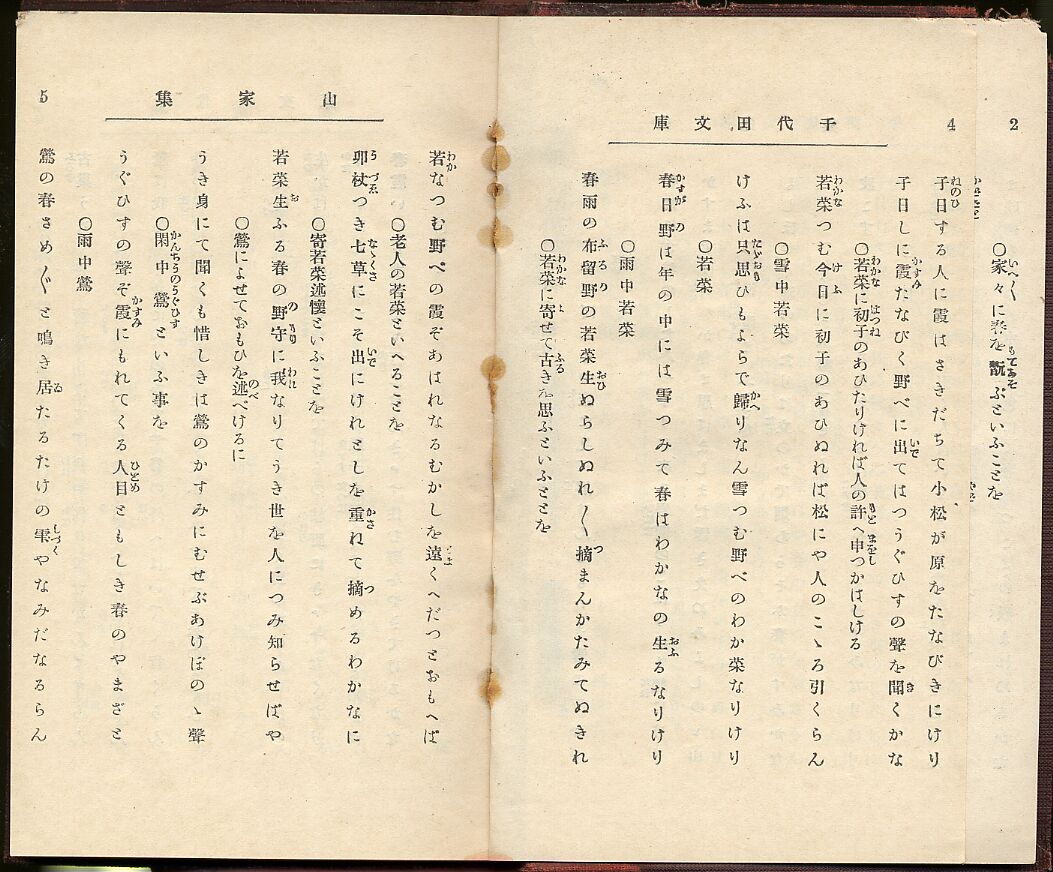 2
○家々に春を翫ぶといふことを
4
千代田文庫
子日する人に霞はさきだちて小松が原をたなびきにけり
子日しに霞たなびく野べに出てはつうぐひすの聲を聞くかな
○若菜に初子のあひたりければ人の許へ申つかはしける
若菜つむ今日に初子のあひぬれば松にや人のこゝろ引くらん
○雪中若菜
けふは只思ひもよらで歸りなん雪つむ野べのわか菜なりけり
○若菜
春日野は年の中には雪つみて春はわかなの生るなりけり
○雨中若菜
春雨の布留野の若菜生ぬらしぬれ〳〵摘まんかたみてぬきれ
○若菜に寄せて古きを思ふといふとことを
山家集
5
若なつむ野べの霞ぞあはれなるむかしを遠くへだつとおもへば
○老人の若菜といへることを
卯杖つき七草にこそ出にけれとしを重ねて摘めるわかなに
○寄若菜述懷といふことを
若菜生ふる春の野守に我なりてうき世を人につみ知らせばや
○鶯によせておもひを述べけるに
うき身にて聞くも惜しきは鶯のかすみにむせぶあけぼのゝ聲
○閑中鶯といふ事を
うぐひすの聲ぞ霞にもれてくる人目ともしき春のやまざと
○雨中鶯
鶯の春さめ〴〵と鳴き居たるたけの雫やなみだなるらん